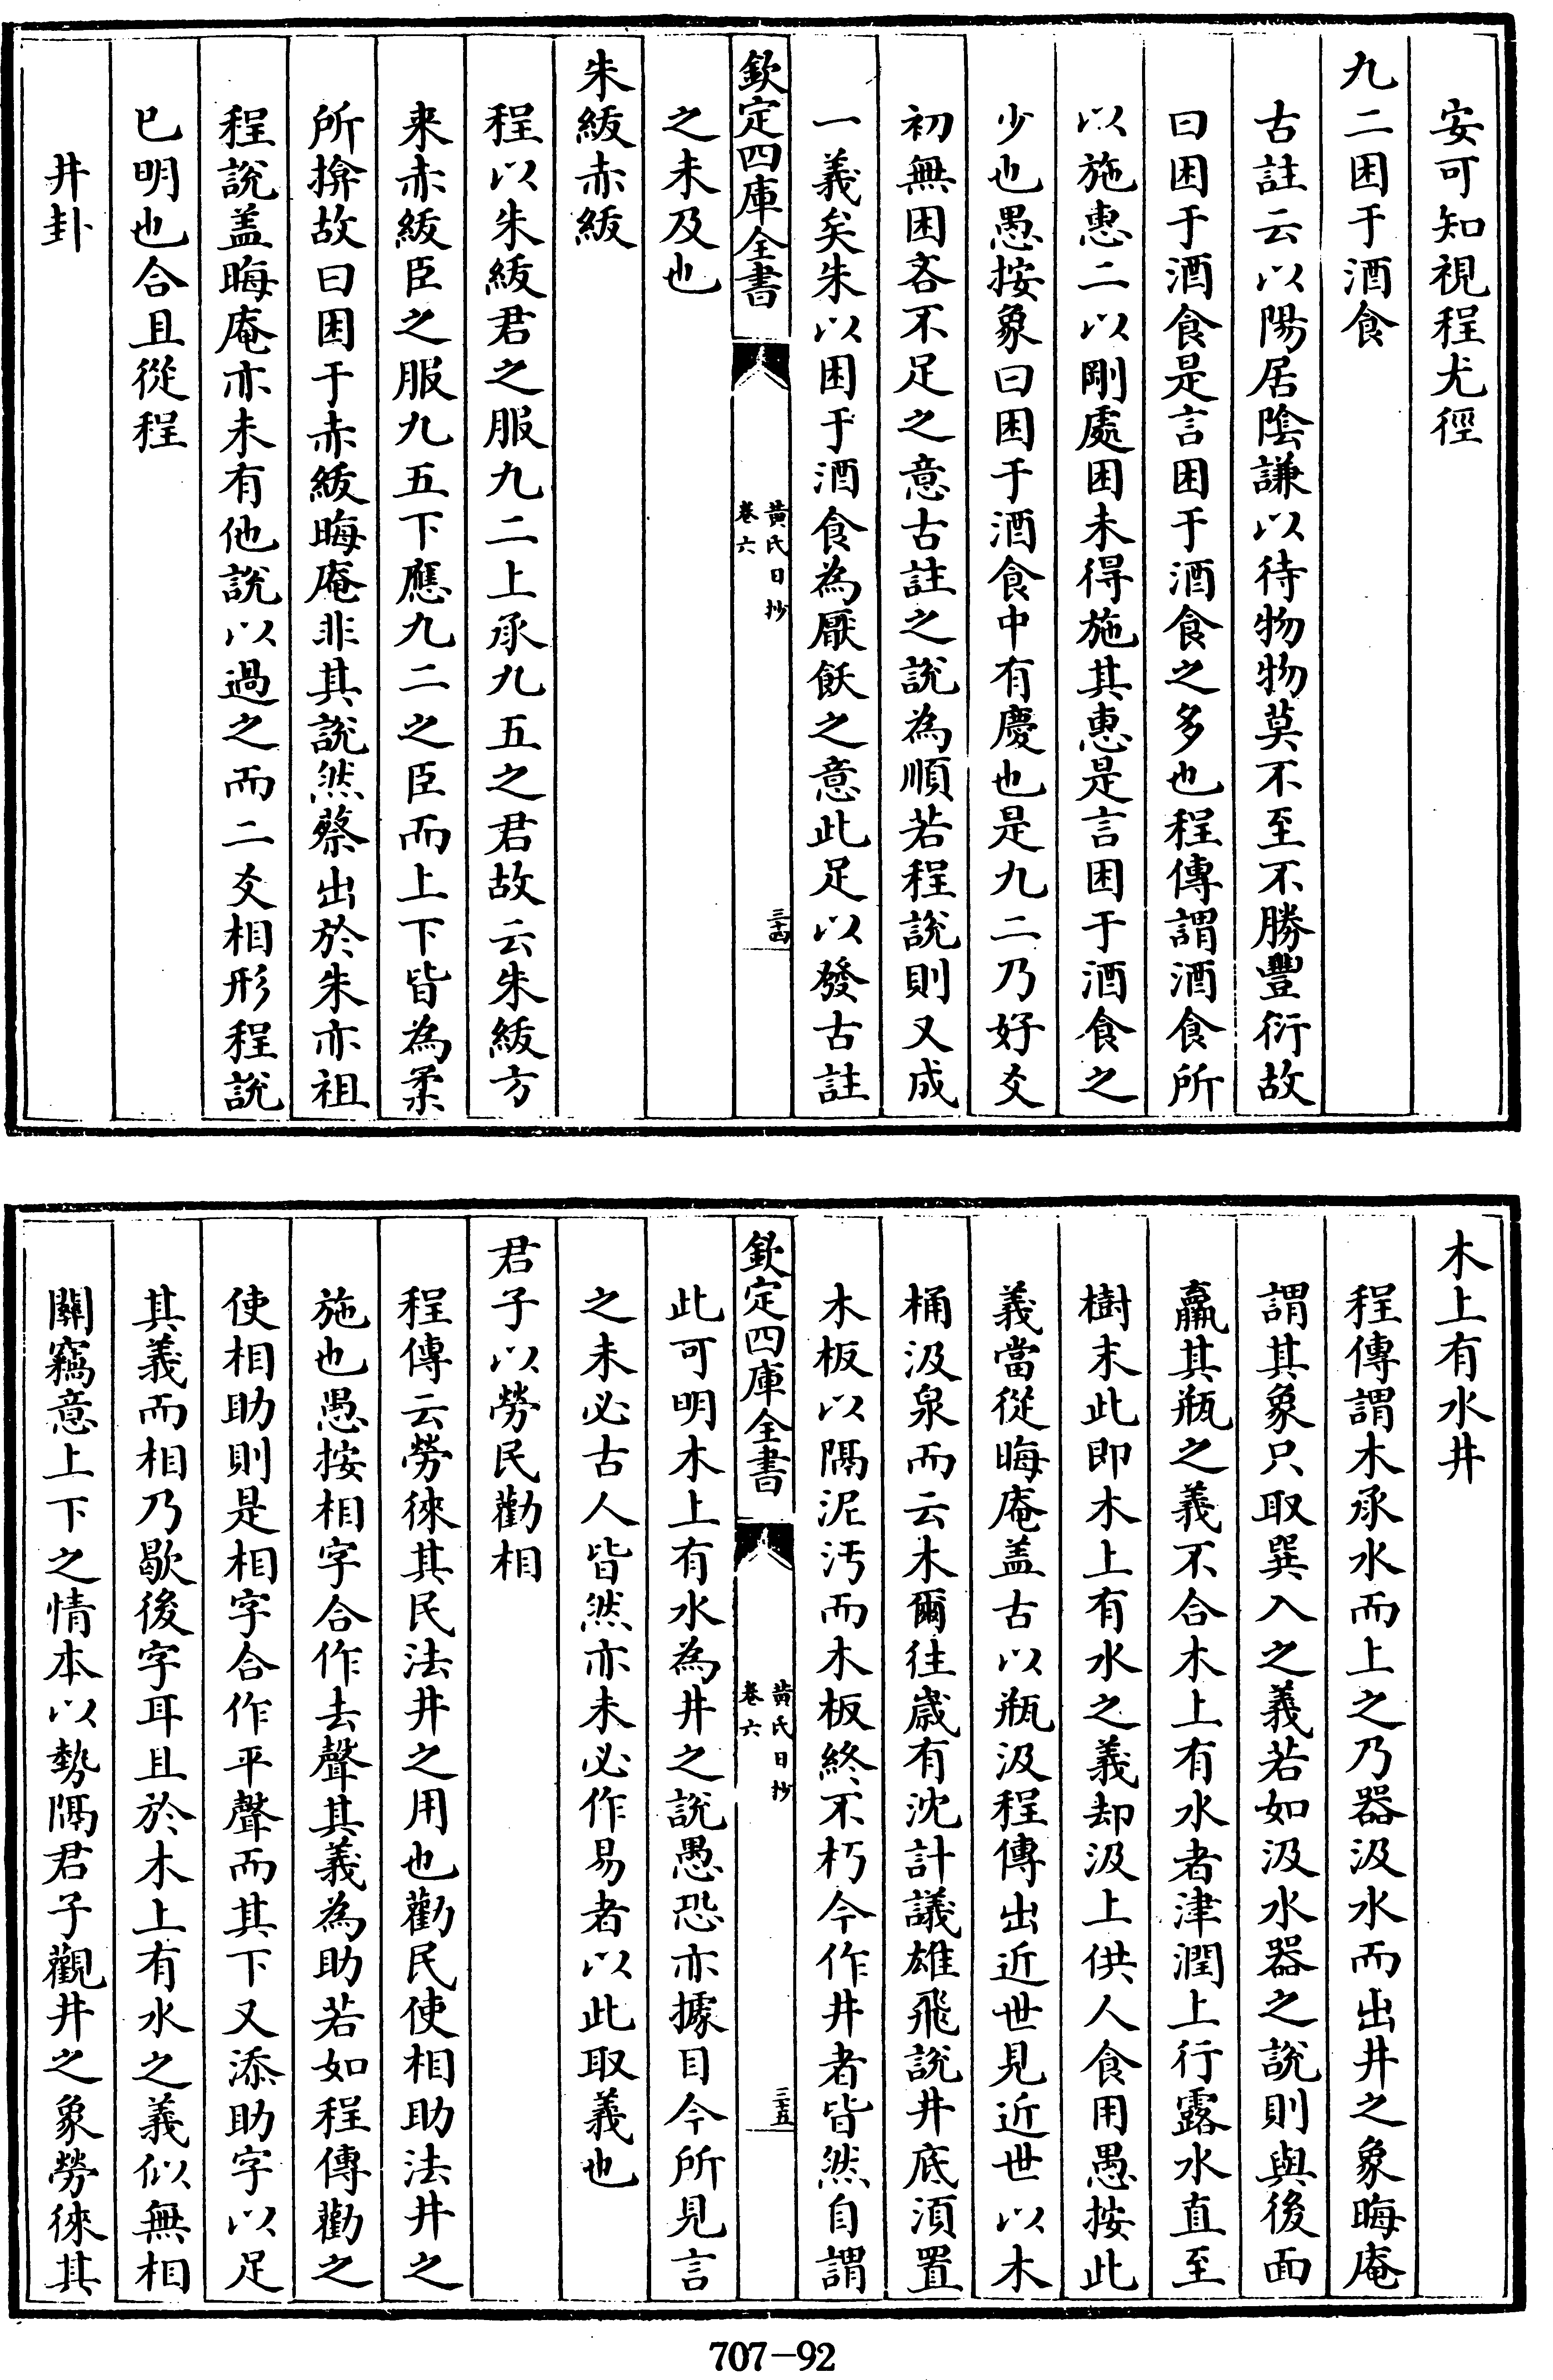 安可知視程尤徑
九二困于酒食
古註云以陽居陰謙以待物物莫不至不勝豐衍故
曰困于酒食是言困于酒食之多也程傳謂酒食所
以施惠二以剛處困未得施其惠是言困于酒食之
少也愚按象曰困于酒食中有慶也是九二乃好爻
初無困吝不足之意古註之說為順若程說則又成
一義矣朱以困于酒食為厭飫之意此足以發古註
欽定四庫全書
黄氏日抄
卷六
三十四
之未及也
朱紱赤紱
程以朱紱君之服九二上承九五之君故云朱紱方
来赤紱臣之服九五下應九二之臣而上下皆為柔
所揜故曰困于赤紱晦庵非其說然蔡出於朱亦祖
程說盖晦庵亦未有他說以過之而二爻相形程說
已明也合且從程
井卦
木上有水井
程傳謂木承水而上之乃器汲水而出井之象晦庵
謂其象只取巽入之義若如汲水器之說則與後面
羸其瓶之義不合木上有水者津潤上行露水直至
樹末此即木上有水之義却汲上供人食用愚按此
義當從晦庵盖古以瓶汲程傳出近世見近世以木
桶汲泉而云木爾往歳有沈計議雄飛說井底湏置
木板以隔泥汚而木板終不朽今作井者皆然自謂
欽定四庫全書
黄氏日抄
卷六
三十五
此可明木上有水為井之說愚恐亦據目今所見言
之未必古人皆然亦未必作易者以此取義也
君子以勞民勸相
程傳云勞徠其民法井之用也勸民使相助法井之
施也愚按相字合作去聲其義為助若如程傳勸之
使相助則是相字合作平聲而其下又添助字以足
其義而相乃歇後字耳且於木上有水之義似無相
關竊意上下之情本以勢隔君子觀井之象勞徠其
707-92